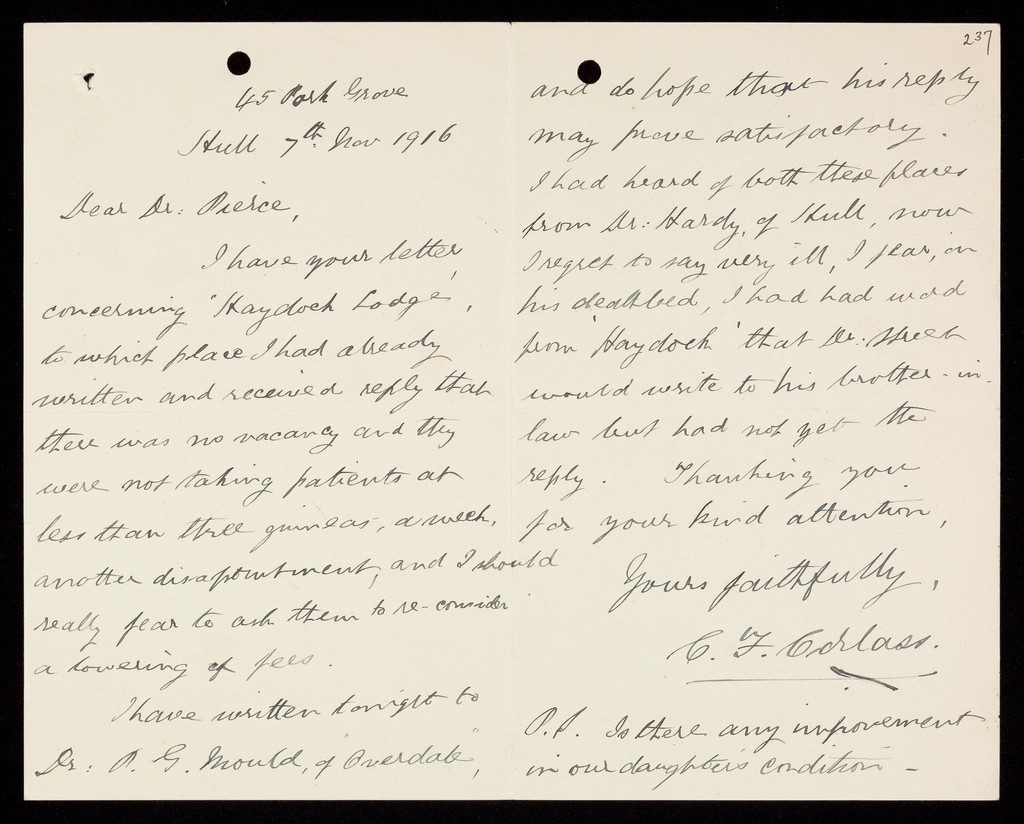 45 Park Grove
Hull 7th. Nov 1916
Dear Dr: Pierce,
I have your letter,
concerning "Haydock Lodge",
to which place I had already
written and received reply that
there was no vacancy and they
were not taking patients at
less than three guineas, a week,
another disappointment, and I should
really fear to ask them to re-consider
a lowering of fees.
I have written tonight to
Dr: P. G. Mould, of "Overdale",
237
and do hope that his reply
may prove satisfactory.
I had heard of both these places
from Dr: Hardy, of Hull, now
I regret to say very ill, I fear, on
his deathbed, I had had word
from 'Haydock' that Dr: Street
would write to his brother-in-
law but had not yet the
reply. Thanking you
for your kind attention,
Yours faithfully,
C. F. Corlass.
P.S. Is there any improvement
in our daughter's condition -